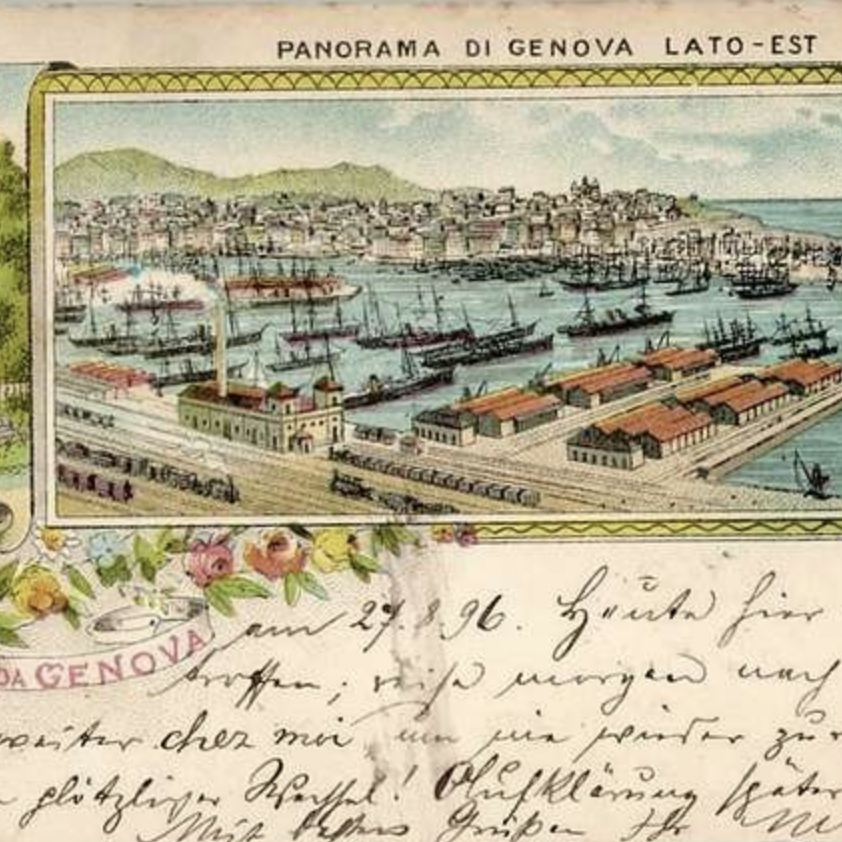 PANORAMA DI GENOVA LATO-EST
DA GENOVA
am 27.8.96. Heute hier
troffen; reise morgen nach
weiter chez moi um nie wieder zur
plötzlicher Wechsel! Aufklärung später
Mit besten Grüßen Ihr